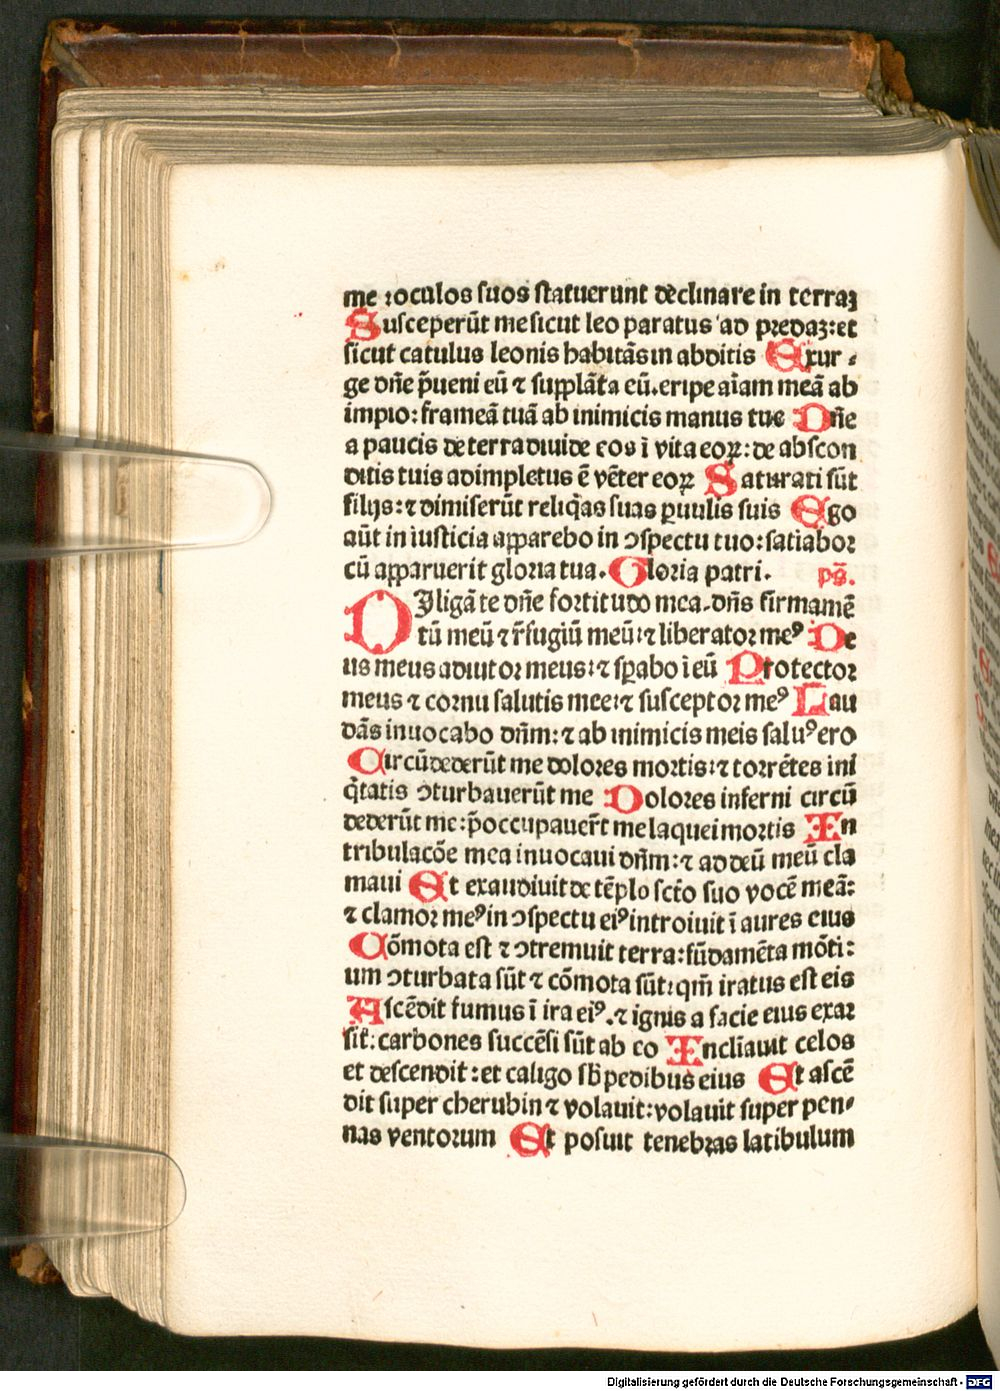 me ⁊oculos suos statuerunt declinare in terraʒ
Susceperūt me sicut leo paratus ad predaʒ:et
sicut catulus leonis habitās in abditis Exur⸗
ge dn̄e p̄ueni eū ⁊ supplāta eū.eripe aīam meā ab
impio:frameā tuā ab inimicis manus tue Dn̄e
a paucis de terra diuide eos ī vita eoꝝ:de abscon
ditis tuis adimpletus ē vēter eoꝝ Saturati sūt
filijs:⁊ dimiserūt reliq̄as suas ꝑuulis suis Ego
aūt in iusticia apparebo in ꝯspectu tuo:satiabor
cū apparuerit gloria tua. Gloria patri. ps̄.
DIligā te dn̄e fortitudo mea.dn̄s firmamē
tū meū ⁊ r̄fugiū meū:⁊ liberator meꝰ De
us meus adiutor meus:⁊ sꝑabo ī eū Protector
meus ⁊ cornu salutis mee:⁊ susceptor meꝰ Lau
dās inuocabo dn̄m:⁊ ab inimicis meis saluꝰ ero
Circūdederūt me dolores mortis:⁊ torrētes ini
q̄tatis ꝯturbauerūt me Dolores inferni circū
dederūt me:p̄occupauer̄t me laquei mortis In
tribulacōe mea inuocaui dn̄m:⁊ ad deū meū cla
maui Et exaudiuit de tēplo sc̄to suo vocē meā:
⁊ clamor meꝰ in ꝯspectu eiꝰ introiuit ī aures eius
Cōmota est ⁊ ꝯtremuit terra:fūdamēta mōti:
um ꝯturbata sūt ⁊ cōmota sūt:qm̄ iratus est eis
Ascēdit fumus ī ira eiꝰ.⁊ ignis a facie eius exar
sit̄:carbones succēsi sūt ab eo Inclīauit celos
et descendit:et caligo sb̄ pedibus eius Et ascē
dit super cherubin ⁊ volauit:volauit super pen⸗
nas ventorum Et posuit tenebras latibulum
Digitalisierung gefördert durch die Deutsche Forschungsgemeinschaft - DFG